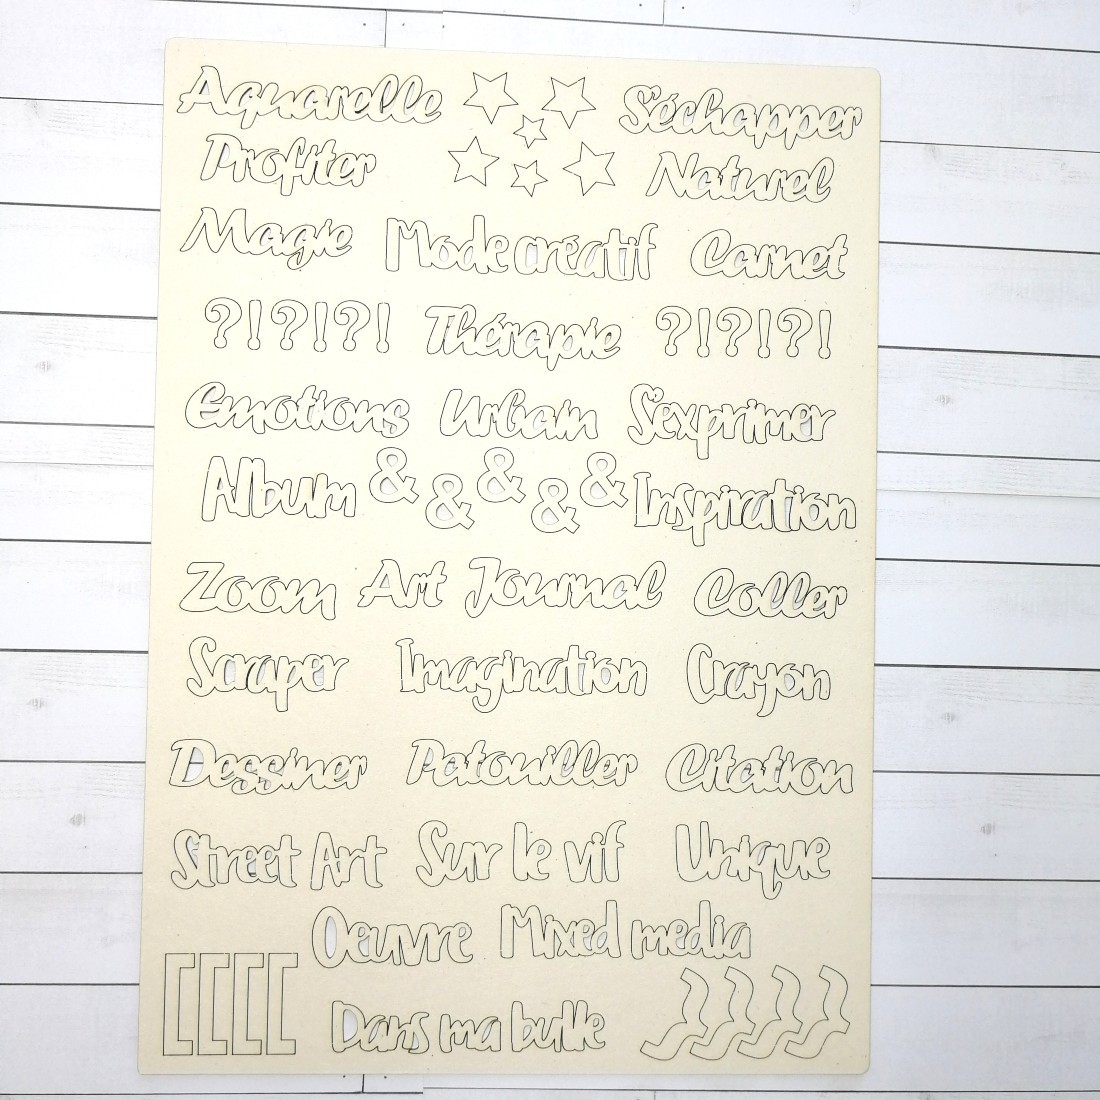 Aquarelle S'échapper
Profiter Naturel
Magie Mode créatif Carnet
?!?!?! Thérapie ?!?!?!
Emotions Urbain S'exprimer
Album & & & & & Inspiration
Zoom Art Journal Coller
Scraper Imagination Crayon
Dessiner Patouiller Citation
Street Art Sur le vif Unique
Oeuvre Mixed media
[[[[
Dans ma bulle